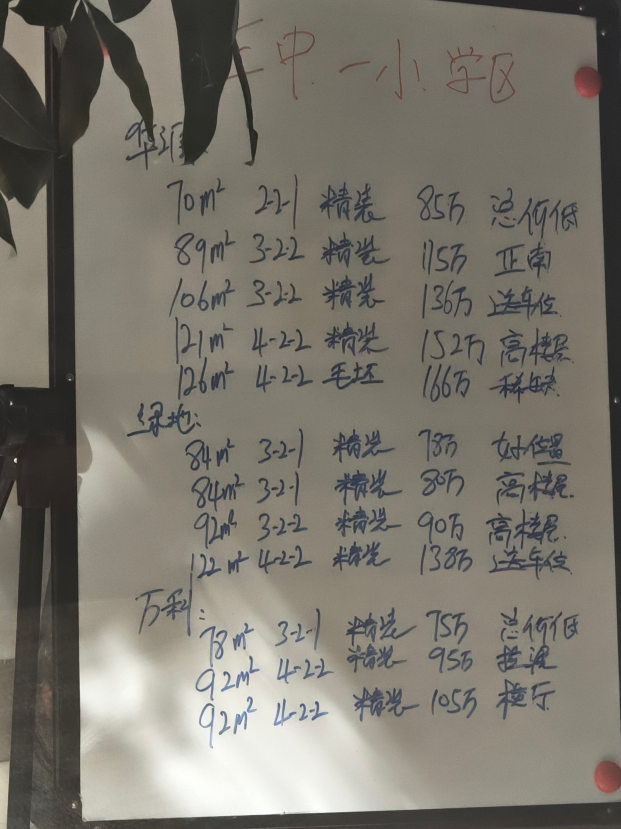 三中.一小学区
华润
70m² 2-2-1 精装 85万 总价低
89m² 3-2-2 精装 115万 正南
106m² 3-2-2 精装 136万 送车位
121m² 4-2-2 精装 152万 高楼层
126m² 4-2-2 毛坯 166万 稀缺
绿地:
84m² 3-2-1 精装 78万 好位置
84m² 3-2-1 精装 80万 高楼层
92m² 3-2-2 精装 90万 高楼层
122m² 4-2-2 精装 138万 送车位
万科:
78m² 3-2-1 精装 75万 总价低
92m² 4-2-2 精装 95万
92m² 4-2-2 精装 105万 横厅